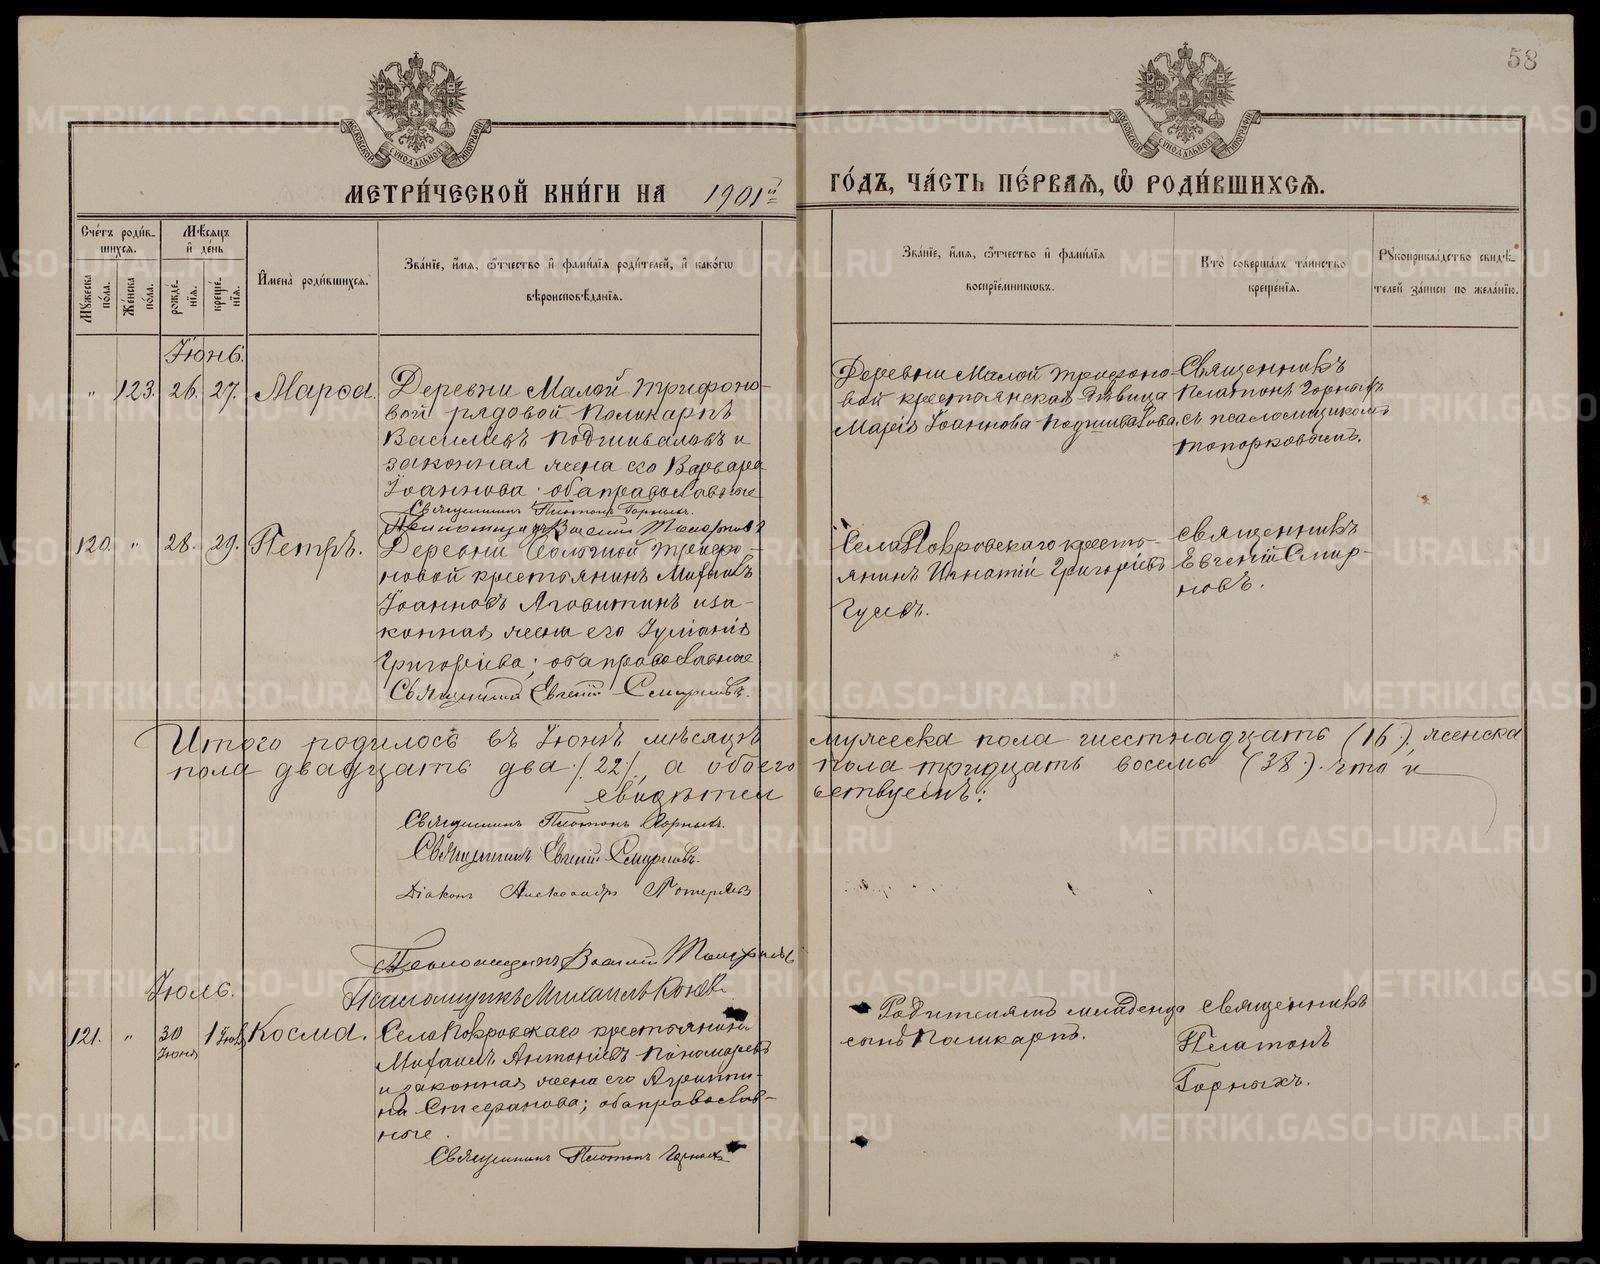 58
МЕТРИ́ЧЕСКОЙ КНИ́ГИ НА 1901й ГО́ДЪ, ЧА́СТЬ ПЕ́РВАѦ, Ѿ РОДИ́ВШИХСѦ.
Сче́тъ роди́в-
шихсѧ.
Мѣ́сѧцъ
и҆ де́нь
Мꙋ́жеска
по́ла.
Же́нска
по́ла.
рожде́-
нїѧ.
креще́-
нїѧ.
И҆мена̀ роди́вшихсѧ.
Зва́нїе, и҆́мѧ, ѻ҆́тчество и҆ фами́лїѧ роди́телей, и҆ како́гѡ
вѣроисповѣ́данїѧ.
Зва́нїе, и҆́мѧ, ѻ҆́тчество и҆ фами́лїѧ
воспрїе́мникѡвъ.
Кто̀ соверша́лъ та́инство
креще́нїѧ.
Рꙋкоприкла́дство свидѣ́-
телей за́писи по жела́нїю.
Іюнь.
" 123. 26. 27. Марѳа.
Деревни Малой Трифоно-
вой рядовой Поликарпъ
Василіевъ Подшиваловъ и
законная жена его Варвара
Іоаннова; оба православные
Священникъ Платонъ Горныхъ.
Псаломщикъ Василій Топорковъ
Деревни Малой Трифоно-
вой крестьянская дѣвица
Марія Іоаннова Подшивалова.
Священникъ
Платонъ Горныхъ
съ псаломщикомъ
Топорковымъ.
120. " 28. 29. Петръ.
Деревни Большой Трифо-
новой крестьянинъ Михаилъ
Іоанновъ Яговитинъ и за-
конная жена его Іуліанія
Григоріева; оба православные
Священникъ Евгеній Смирновъ.
Села Покровскаго кресть-
янинъ Игнатій Григоріевъ
Гусевъ.
Священникъ
Евгеній Смир-
новъ.
Итого родилось въ Іюнѣ мѣсяцѣ мужеска пола шестнадцать (16), женска
пола двадцать два (22), а обоего пола тридцать восемь (38). Что и
свидѣтельствуемъ:
Священникъ Платонъ Горныхъ.
Священникъ Евгеній Смирновъ.
Діаконъ Александръ Потеряевъ
Псаломщикъ Василій Топорковъ
Псаломщикъ Михаилъ Коневъ
Іюль.
121. " 30 Іюня 1 Іюля Косма.
Села Покровскаго крестьянинъ
Михаилъ Антоніевъ Пономаревъ
и законная жена его Агриппи-
на Стефанова; оба православ-
ные.
Священникъ Платонъ Горныхъ
Родителямъ младенца
сынъ Поликарпъ.
Священникъ
Платонъ
Горныхъ.
METRIKI.GASO-URAL.RU